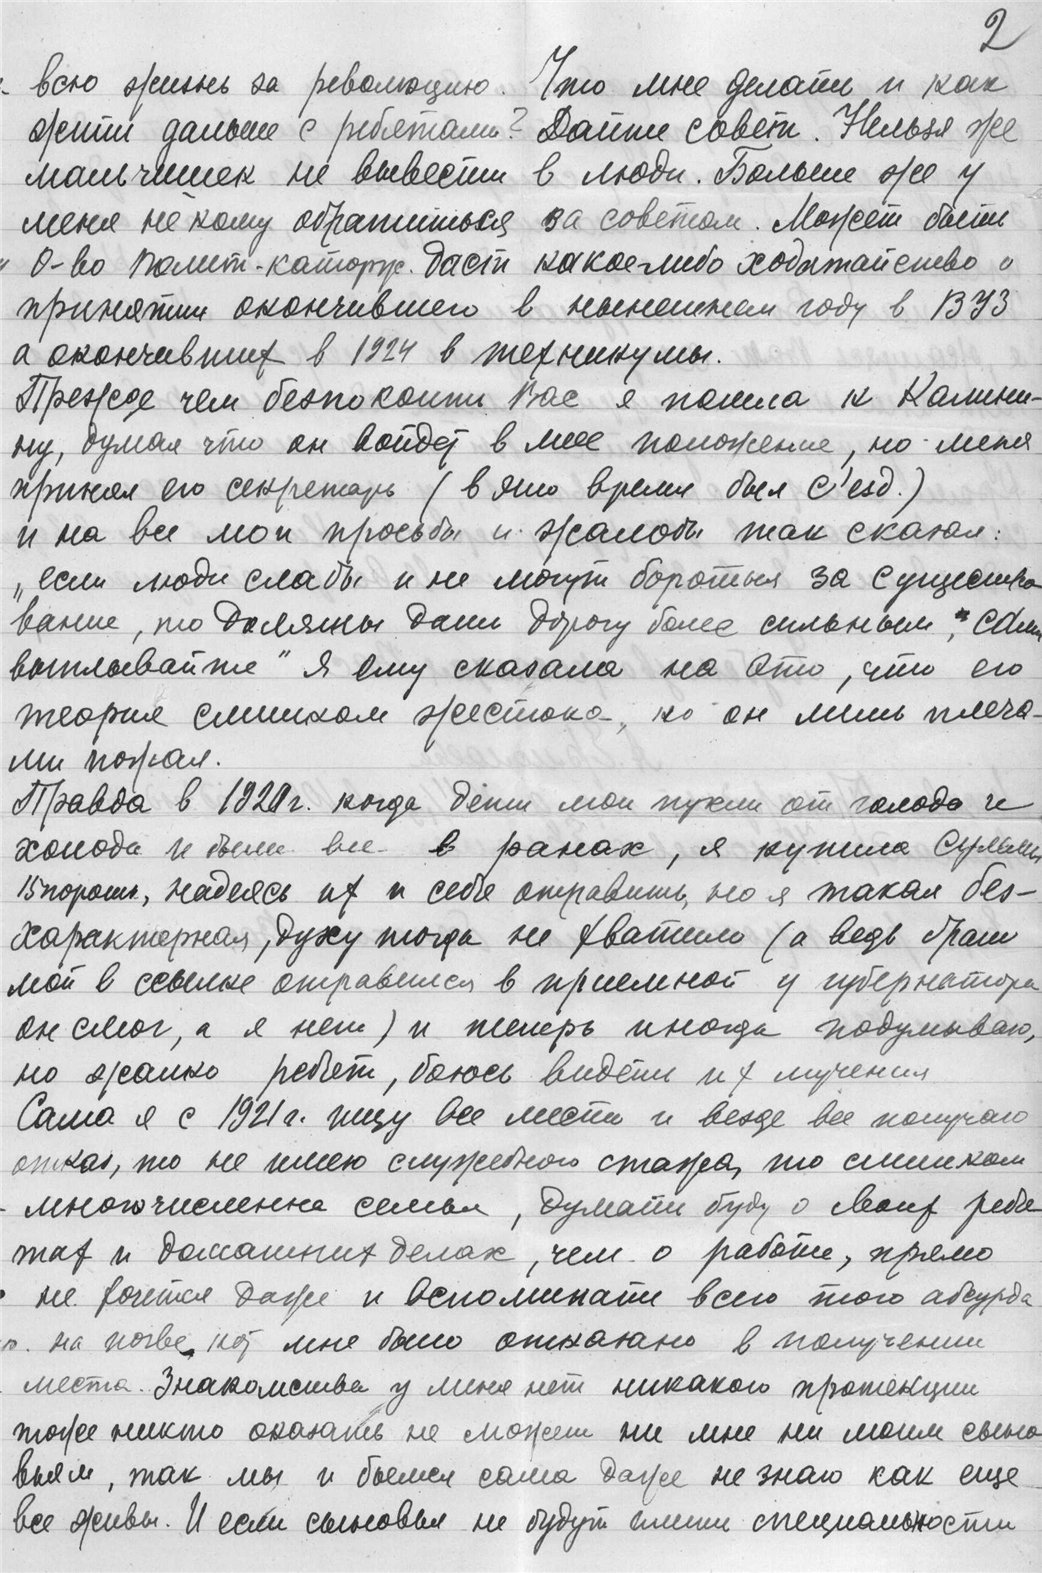 2
всю жизнь за революцию. Что мне делать и как
жить дальше с ребятами? Дайте совет. Нельзя же
мальчишек не вывести в люди. Больше же у
меня не кому обратиться за советом. Может быть
О-во Полит-каторж. даст какое-либо ходатайство о
принятии окончившего в нынешнем году в ВУЗ
а окончивших в 1924 в техникумы.
Прежде чем безпокоить Вас я пошла к Калини-
ну, думая что он войдет в мое положение, но меня
принял его секретарь (в это время был с'езд.)
и на все мои просьбы и жалобы так сказал:
„если люди слабы и не могут бороться за существо
вание, то должны дать дорогу более сильным", сами
выплывайте" Я ему сказала на это, что его
теория слишком жестока, но он лишь плеча-
ми пожал.
Правда в 1920г. когда дети мои пухли от голода и
холода и были все в ранах, я купила сулемы
15 порошк., надеясь их и себя отравить, но я такая без-
характерная, духу тогда не хватило (а ведь брат
мой в ссылке отравился в приемной у губернатора
он смог, а я нет) и теперь иногда подумываю,
но жалко ребят, боюсь видеть их мучения
Сама я с 1921 г. ищу все места и везде все получаю
отказ, то не имею служебного стажа, то слишком
многочисленна семья, думать буду о своих ребя
тах и домашних делах, чем о работе, прямо
не хочется даже и вспоминать всего того абсурда
на почве кот мне было отказано в получении
места. Знакомства у меня нет никакого протекции
тоже никто оказать не может ни мне ни моим сыно
вьям, так мы и бьемся сама даже не знаю как еще
все живы. И если сыновья не будут иметь специальности